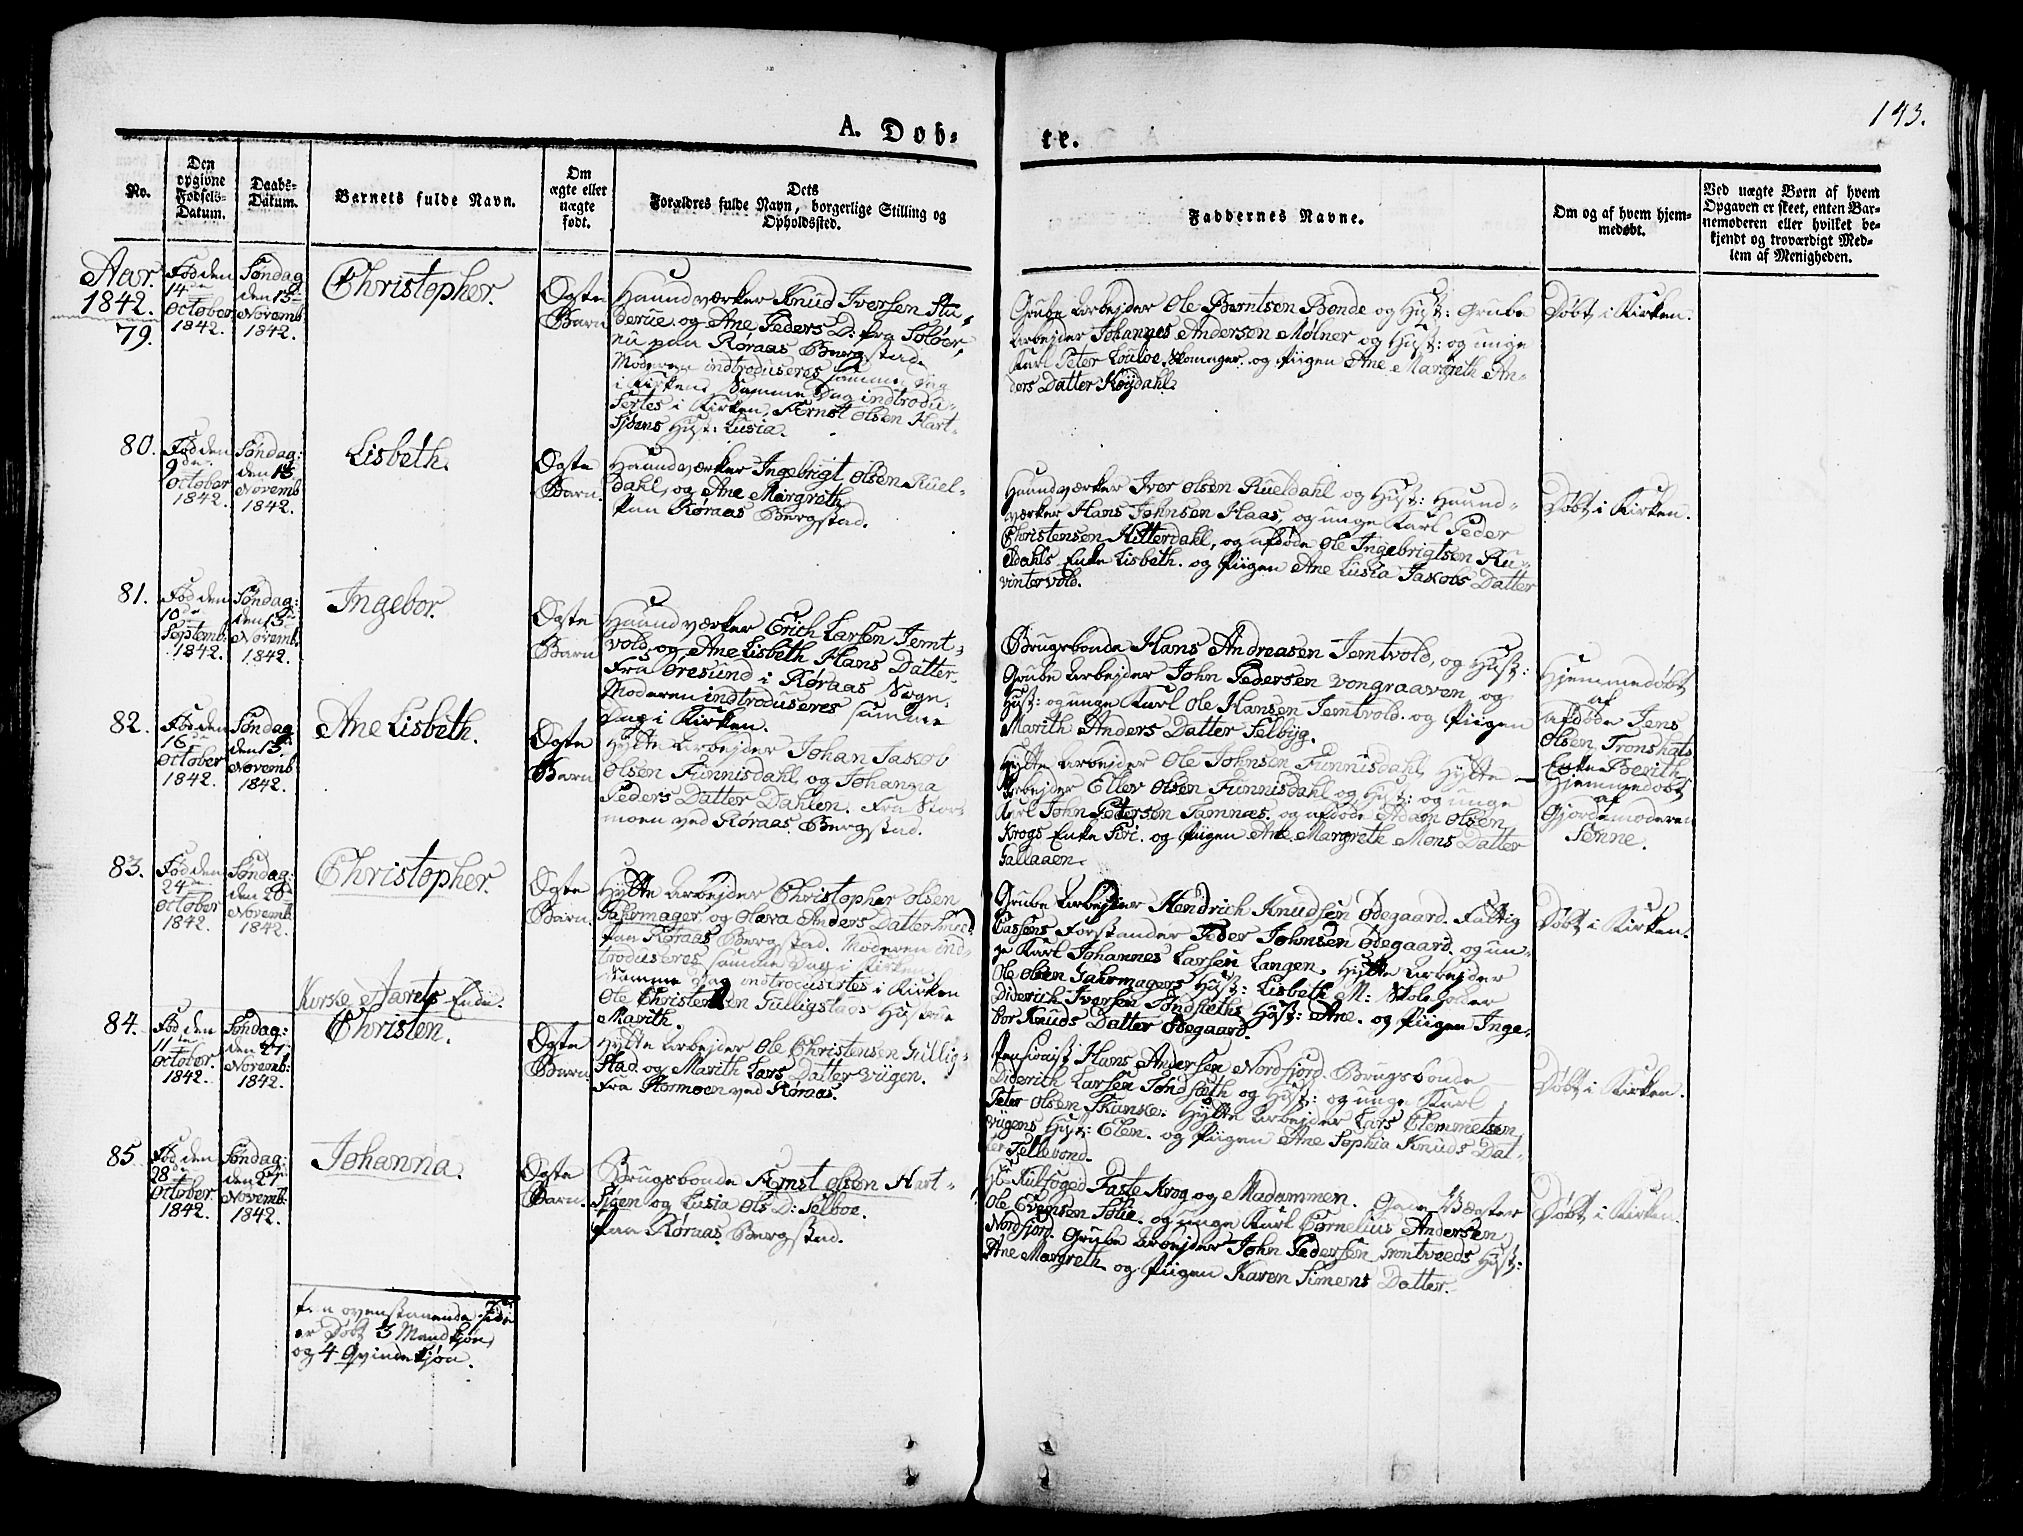 143.
A. Døb-
te.
No.
Den
opgivne
Fødsels-
Datum.
Daabs-
Datum.
Barnets fulde Navn.
Om
ægte eller
uægte
født.
Dets
Forældres fulde Navn, borgerlige Stilling og
Opholdssted.
Faddernes Navne.
Om og af hvem hjem-
medøbt.
Ved uægte Børn af hvem
Opgaven er skeet, enten Bar-
nemoderen eller hvilket be-
kjendt og troværdigt Med-
lem af Menigheden.
Aar.
1842.
79.
Fød den
14de
October
1842.
Søndag
den 13de
Novemb
1842.
Christopher.
Ogste
Barn
Haundværker Knud Iversen Stu-
derue og Ane Peders D: fra Soløer,
nu paa Røraas Bergstad.
Moderen indtroduseres samme Dag
i Kirken. Samme Dag indtrodu-
sertes i Kirken, Ernst Olsen Hart-
sjøens Hust: Lusia.
Grube Arbejder Ole Berntsen Bonde og Hust: Grube
Arbejder Johannes Andersen Mølner og Hust: og unge
Karl Peter Skomager. og Piigen Ane Margreth An-
ders Datter Køjdahl.
Døbt i Kirken.
80.
Fød den
9de
October
1842.
Søndag:
den 13
Novemb
1842.
Lisbeth.
Ogste
Barn.
Haundværker Ingebrigt Olsen Ruel-
dahl, og Ane Margreth
paa Røraas Bergstad.
Haundværker Iver Olsen Rueldahl og Hust: Haund-
værker Hans Johnsen Haas, og unge Karl Peder
Christensen Hitterdahl, og afdøde Ole Ingebrigtsen Ru-
eldahls Enke Lisbeth. og Piigen Ane Lusia Jakobs Datter
vintervold.
Døbt i Kirken.
81.
Fød den
10de
Septemb:
1842.
Søndag:
den 13de
Novemb:
1842.
Ingebor.
Ogste
Barn
Haundværker Erich Larsen Jemt-
vold, og Ane Lisbeth Hans Datter.
Fra Oresund i Røraas Sogn.
Moderen indtroduseres samme
Dag i Kirken.
Brugsbonde Hans Andreasen Jemtvold, og Hust:
Grube Arbejder John Pedersen Vongraaven, og
Hust: og unge Karl Ole Hansen Jemtvold. og Piigen
Marith Anders Datter Selbyg.
Hjemmedøbt
af
afdøde Jens
Olsen Tronshats
Enke Berith
82.
Fød den
16de
October
1842.
Søndag
den 13de
Novemb
1842.
Ane Lisbeth.
Ogste
Barn
Hytte Arbejder Johan Jakov
Olsen Funnisdahl og Johanna
Peders Datter Dahlen. Fra Stor-
moen ved Røraas Bergstad.
Hytte Arbejder Ole Johnsen Funnisdahl, Hytte
Arbejder Ellev Olsen Funnisdahl og Hust: og unge
Karl John Petersen Tamnæs. og afdøde Adam Olsen
Krogs Enke Siri. og Piigen Ane Margreth Mons Datter
Gallaaen.
Hjemmedøbt
af
Gjordemoderen
Senne.
83.
Fød den
24de
October
1842.
Søndag:
den 20de
Novemb:
1842.
Christopher.
Ogste
Barn.
Hytte Arbejder Christopher Olsen
Gahrmager og Olava Anders Datter
paa Røraas Bergstad. Moderen ind-
troduseres samme Dag i Kirken.
Samme Dag indtrodusertes i Kirken
Ole Christensen Gulligstads Hustrue
Marith.
Grube Arbejder Hendrich Knudsen Ødegaard. Fattig
Cassens Forstander Peder Johnsen Ødegaard. og un-
ge Karl Johannes Larsen Langen. Hytte Arbejder
Ole Olsen Gahrmagers Hust: Lisbeth M: Skole Holder
Diderich Iversen Tøndseths Hust: Ane. og Piigen Inge-
bor Knuds Datter Ødegaard.
Døbt i Kirken.
Kirke Aarets Ende.
84.
Fød den
11de
October.
1842.
Søndag:
den 27de
Novemb:
1842.
Christen.
Ogste
Barn.
Hytte Arbejder Ole Christensen Gullig-
stad. og Marith Lars Datter Viigen.
Fra Stormoen ved Røraas.
Pensionist Hans Andersen Nordfjord. Brugsbonde
Diderich Larsen Tøndseth og Hust: og unge Karl
Peter Olsen Skanke. Hytte Arbejder Lars Clemmetsen
Viigens Hust: Elen. og Piigen Ane Sophia Knuds Dat-
ter Tellevond.
Døbt i Kirken.
85.
Fød den
28de
October.
1842.
Søndag:
den 27de
Novemb:
1842.
Johanna.
Ogste
Barn.
Brugsbonde Ernst Olsen Hart-
sjøen og Lusia Ols D: Selboe.
Paa Røraas Bergstad.
Hr. Kulfoged Faste Krog og Madammen.
Ole Evensen Solie. og unge Karl Cornelius Andersen
Nordfjord. Grube Arbejder John Pedersen Trontveeds Hust:
Ane Margreth og Piigen Karen Simens Datter.
Døbt i Kirken.
ovenstaaende
er Døbt 3 Mandkjøn,
og 4 Qvindekjøn.